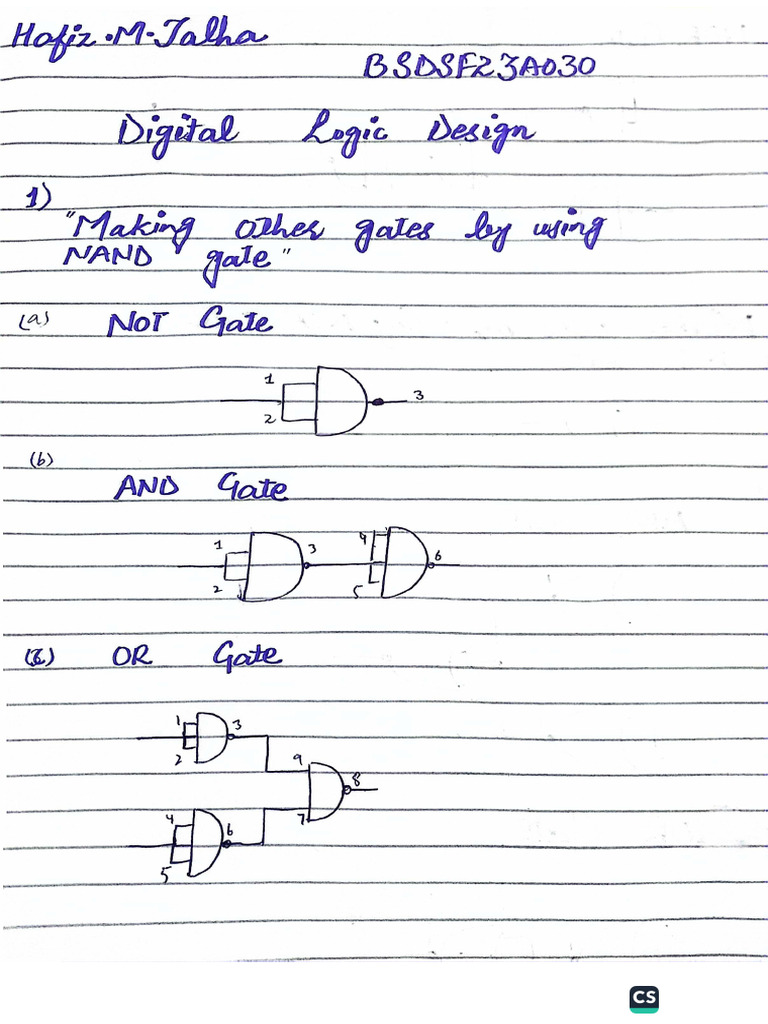 Hafiz.M.Talha
BSDSF23A030
Digital Logic Design
1)
"Making other gates by using
NAND gate"
(a) NOT Gate
1
3
2
(b)
AND Gate
1 3 4 6
2 5
OR Gate
1 3
2 9
8
4 6 7
5
CS